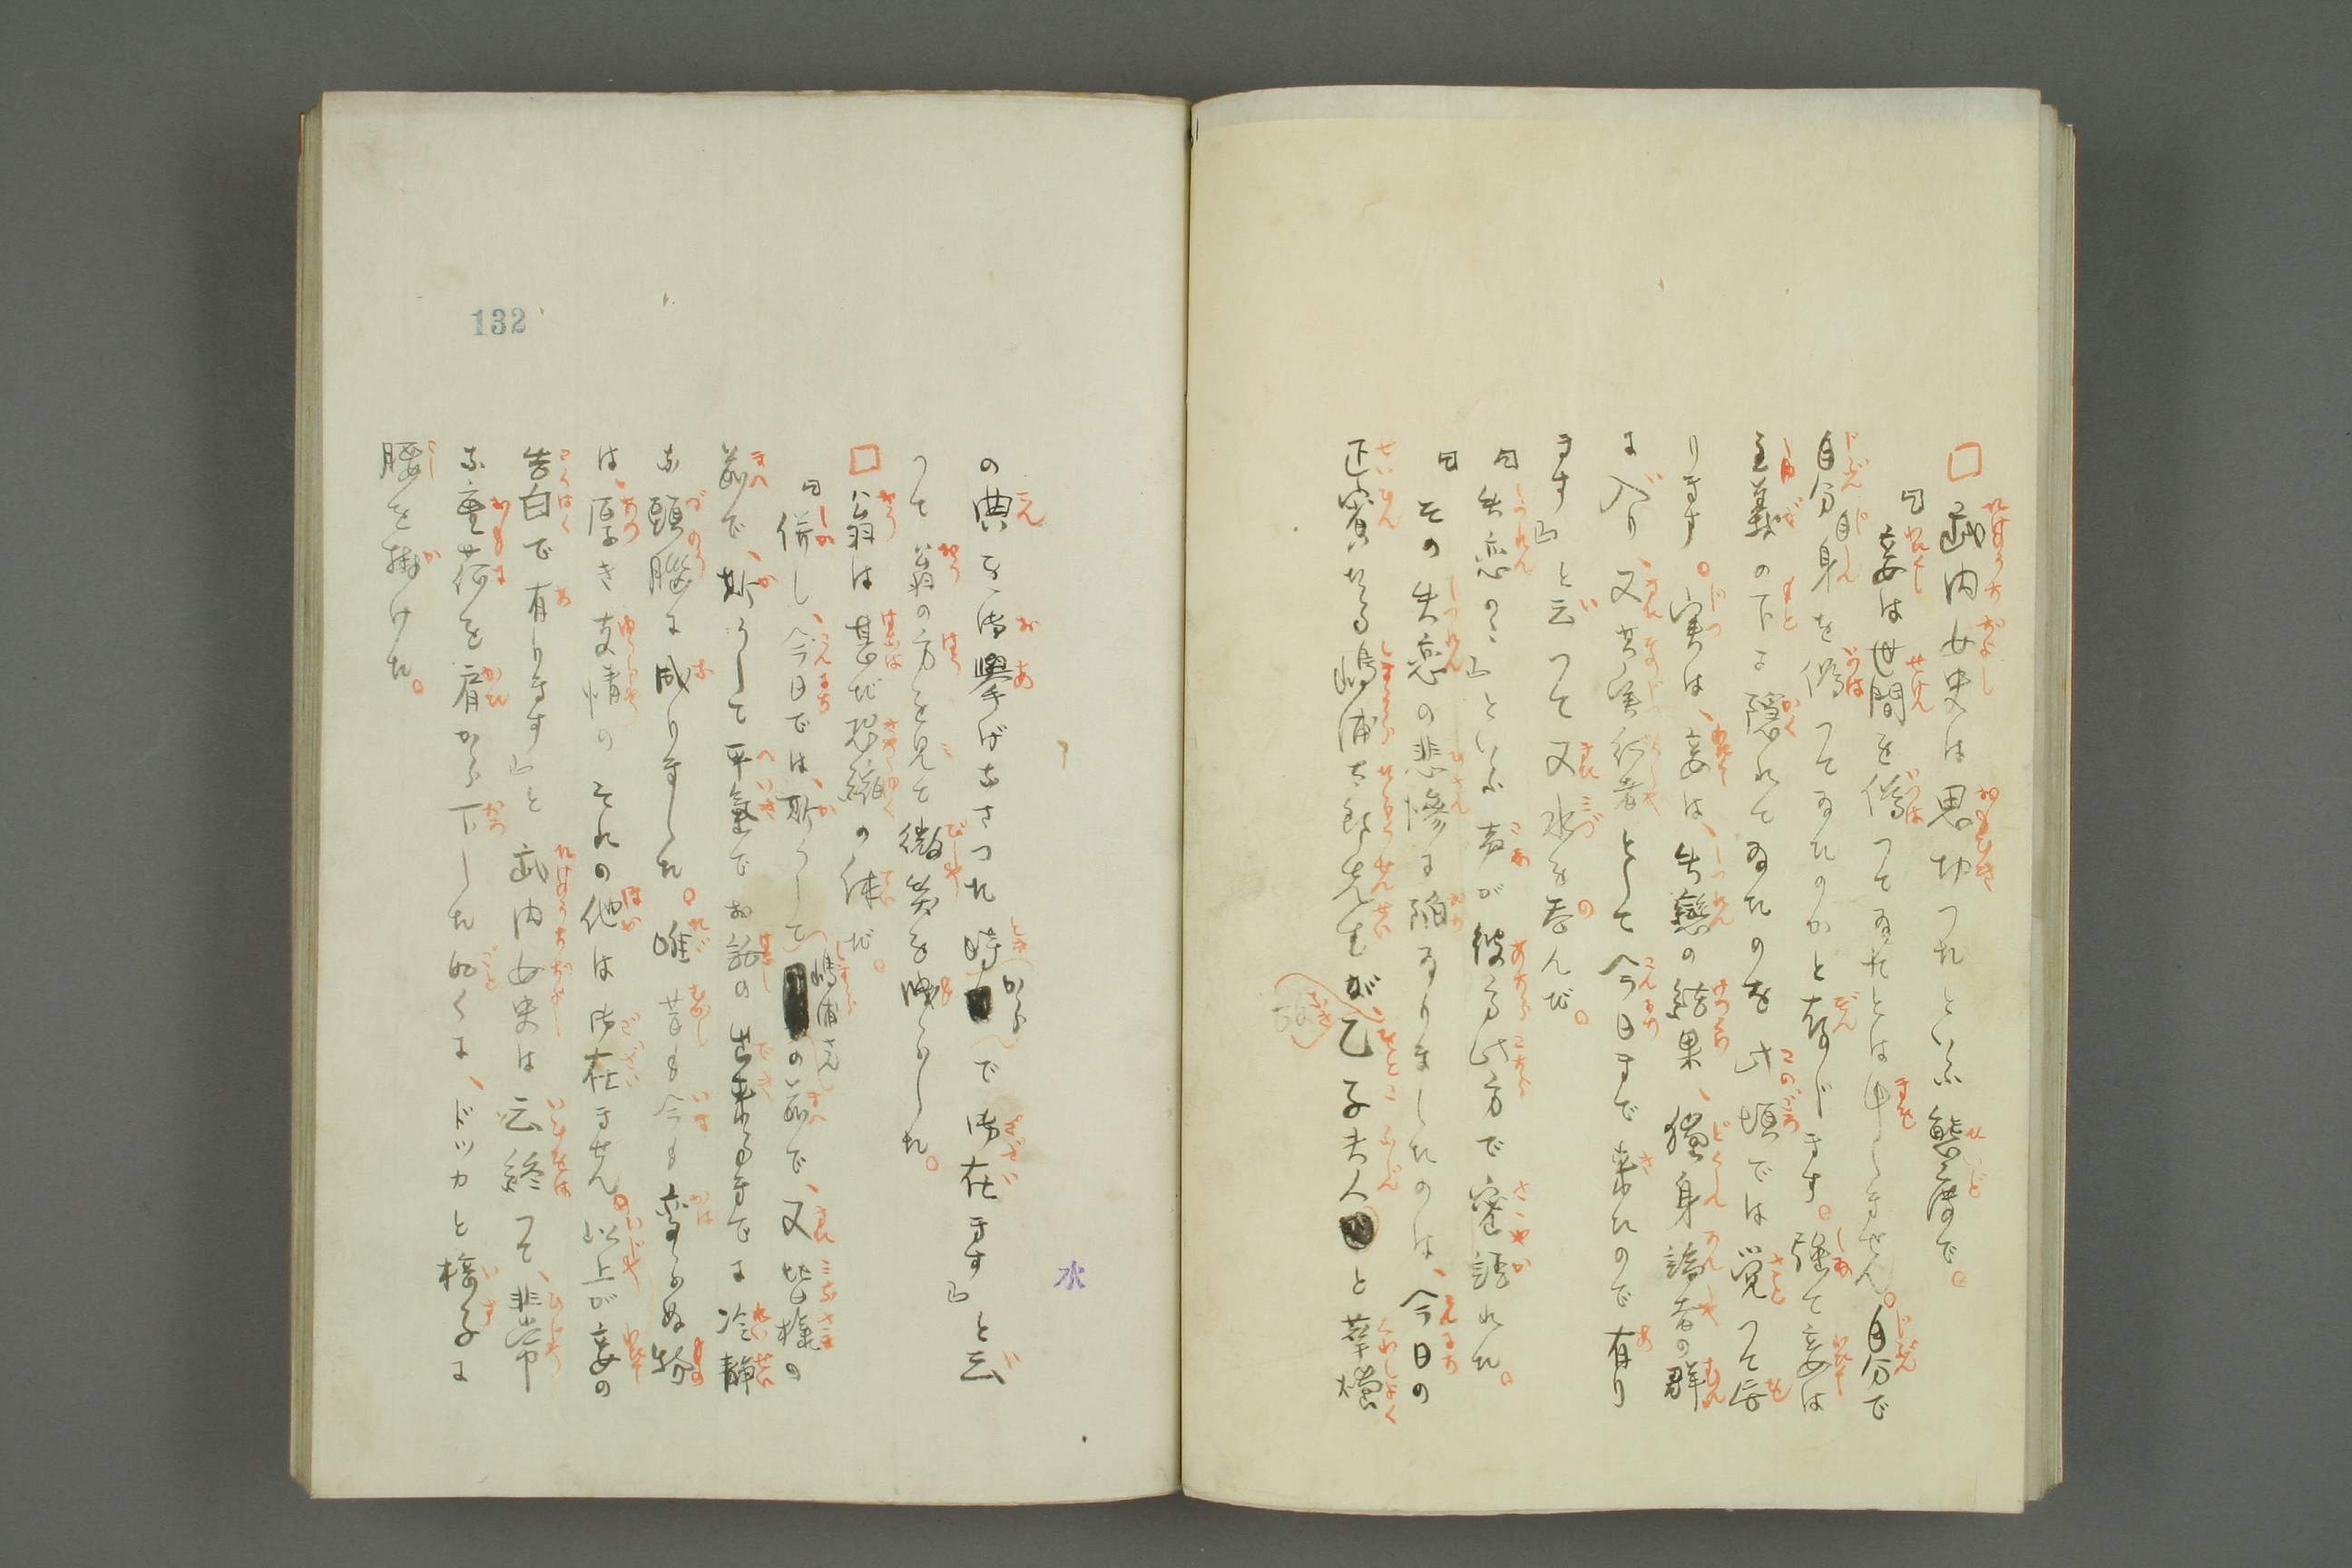 □武内女史は思切つたといふ態度で。
「妾は世間を僞つてゐたとは申しません。自分で
自分自身を僞つてゐたのかと存じます。強て妾は
主義の下に隱れてゐたのを此頃では覚つて居
ります。実は、妾は、失戀の結果、獨身論者の群
に入り、又其実行者として今日まで來たので有り
ます」と云つて又水を呑んだ。
「失恋の…」といふ声が彼方此方で密語れた。
「その失恋の悲慘に陥ゐりましたのは、今日の
正賓たる嶋浦太郎先生が乙子夫人と華燭
の典を御擧げなさつた時からで御在ます」と云
つて翁の方を見て微笑を洩らした。
□翁は甚だ恐縮の体だ。
「併し、今日では、斯うして嶋浦さんの前で、又皆樣の
前で、斯うして平氣でお話の出來るまでに冷靜
な頭腦に成りました。唯昔も今も變らぬ物
は、厚き友情のそれの他は御在ません。以上が妾の
告白で有ります」と武内女史は云終つて、非常
な重荷を肩から下した如くに、ドツカと椅子に
腰を掛けた。
132
水